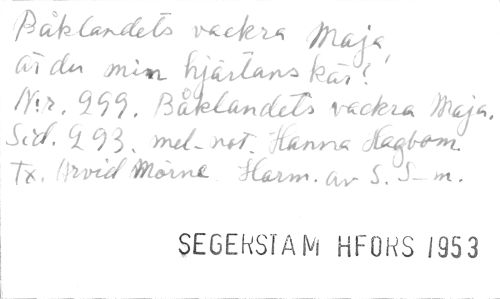 Båklandets vackra Maja,
är du min hjärtans kär?
N:r. 299. Båklandets vackra Maja.
Sid. 293. mel-not. Hanna Hagbom.
Tx. Arvid Mörne. Harm. av S. S-m.
SEGERSTAM HFORS 1953